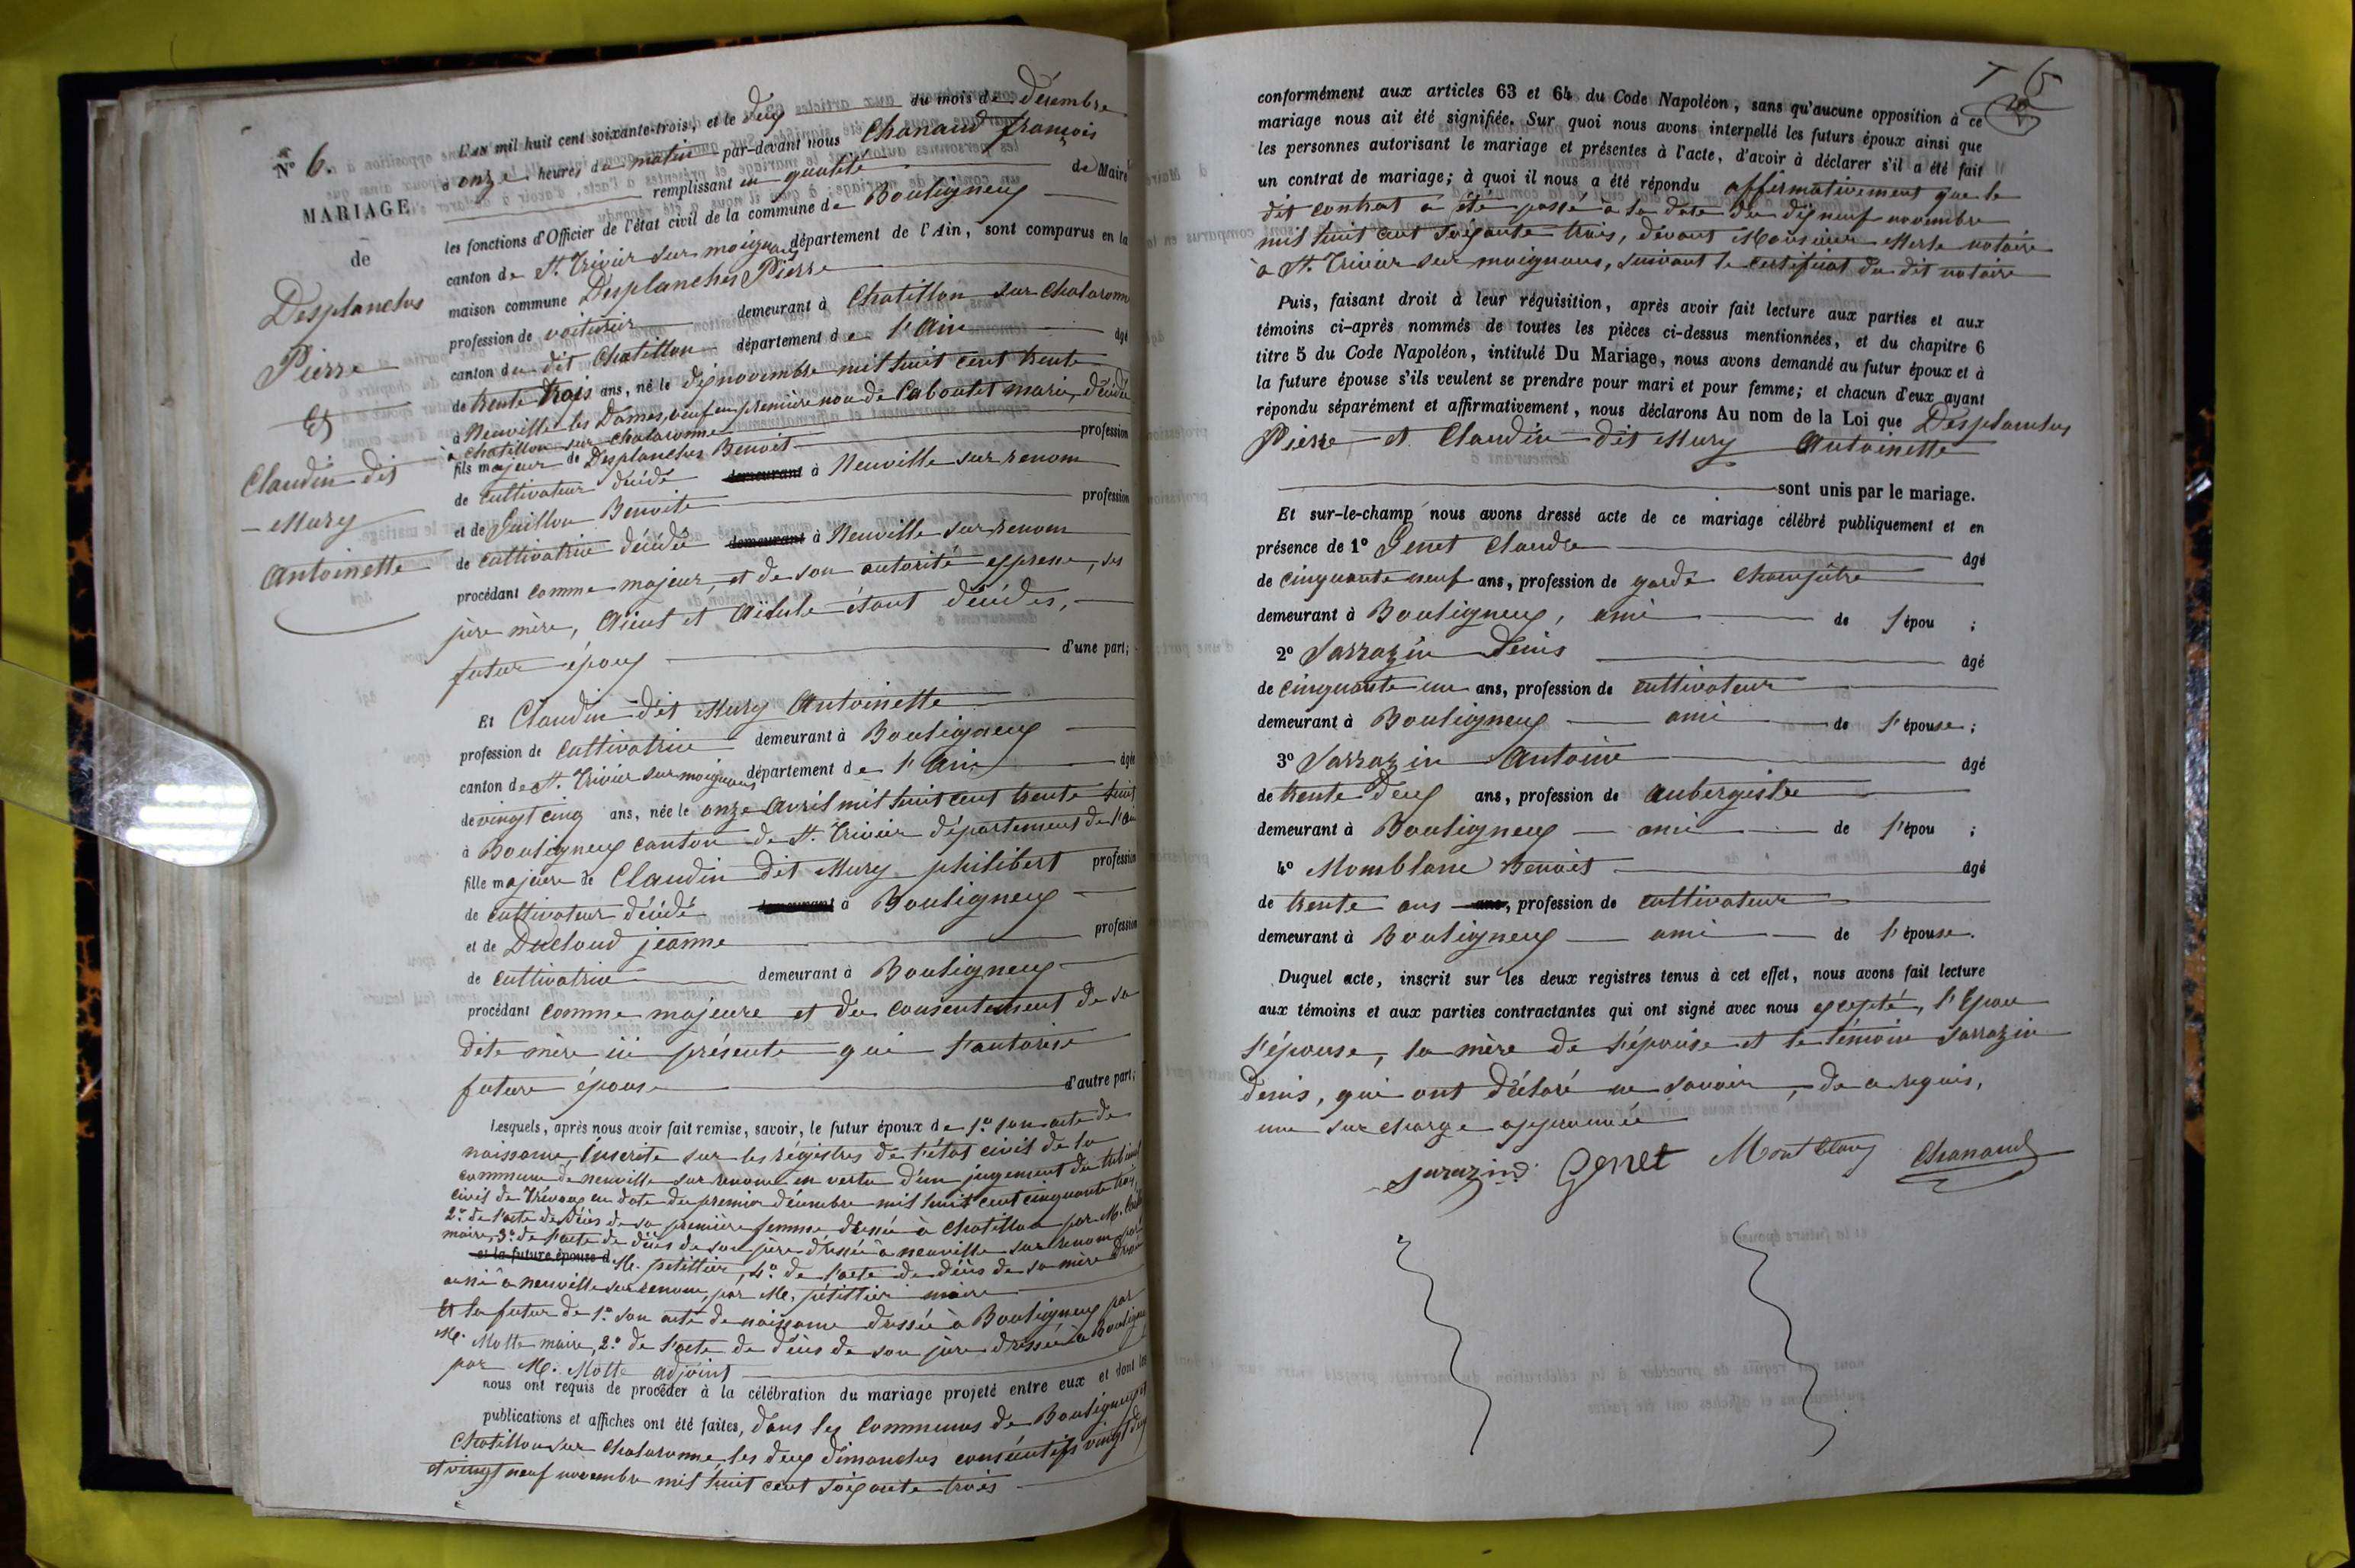 N° 6.
MARIAGE
de
Desplanches
Pierre
Et
Claudin dit
Mury
Antoinette
L'an mil huit cent soixante-trois, et le deux du mois de décembre
à onze heures du matin par-devant nous Chanaud françois
remplissant en qualité de Maire
les fonctions d'Officier de l'état civil de la commune de Bouligneux
canton de St. Trivier sur moignans département de l'Ain, sont comparus en la
maison commune Desplanches Pierre
profession de voiturier demeurant à Chatillon sur chalaronne
canton du dit Chatillon département de l'Ain âgé
de trente trois ans, né le dix novembre mil huit cent trente
à Neuville les Dames, veuf en première noce de Laboulet marie, décédée
à chatillon sur chalaronne
fils majeur de Desplanches Benoit profession
de cultivateur décédé demeurant à Neuville sur renom
et de Guillon Benoite profession
de cultivatrice décédée demeurant à Neuville sur renom
procédant comme majeur, et de son autorité expresse, ses
père mère, Aïeul et Aïeule étant décédés,
futur époux d'une part;
Et Claudin dit Mury Antoinette
profession de cultivatrice demeurant à Bouligneux
canton de St. Trivier sur moignans département de l'Ain âgée
de vingt cinq ans, née le onze avril mil huit cent trente huit
à Bouligneux canton de St. Trivier département de l'Ain
fille majeure de Claudin dit Mury philibert profession
de cultivateur décédé demeurant à Bouligneux
et de Ducloud jeanne profession
de cultivatrice demeurant à Bouligneux
procédant comme majeure et du consentement de sa
dite mère ici présente qui l'autorise
future épouse d'autre part;
Lesquels, après nous avoir fait remise, savoir, le futur époux de 1° son acte de
naissance, inscrite sur les régistres de l'état civil de la
commune de neuville sur renom en vertu d'un jugement du tribunal
civil de Trévoux en date du premier décembre mil huit cent cinquante trois,
2° de l'acte de décès de sa première femme dressé à Chatillon par M.
maire, 3° de l'acte de décès de son père dressé à neuville sur renom par
et la future épouse d M. petittier, 4° de l'acte de décès de sa mère
à neuville sur renom, par M. petittier maire
Et la future de 1° son acte de naissance dressée à Bouligneux par
M. Motte maire, 2° de l'acte de décès de son père dressée à Bouligneux
par M. Motte adjoint
nous ont requis de procéder à la célébration du mariage projeté entre eux et dont les
publications et affiches ont été faites, dans les communes de Bouligneux et
Chatillon sur Chalaronne les deux dimanches consécutifs vingt deux
et vingt neuf novembre mil huit cent soixante trois
T 6
conformément aux articles 63 et 64 du Code Napoléon, sans qu'aucune opposition à ce
mariage nous ait été signifiée. Sur quoi nous avons interpellé les futurs époux ainsi que
les personnes autorisant le mariage et présentes à l'acte, d'avoir à déclarer s'il a été fait
un contrat de mariage; à quoi il nous a été répondu affirmativement que le
dit contrat a été passé à la date du dix neuf novembre
mil huit cent soixante trois, devant Monsieur Merle notaire
à St. Trivier sur moignans, suivant le certificat du dit notaire
Puis, faisant droit à leur réquisition, après avoir fait lecture aux parties et aux
témoins ci-après nommés de toutes les pièces ci-dessus mentionnées, et du chapitre 6
titre 5 du Code Napoléon, intitulé Du Mariage, nous avons demandé au futur époux et à
la future épouse s'ils veulent se prendre pour mari et pour femme; et chacun d'eux ayant
répondu séparément et affirmativement, nous déclarons Au nom de la Loi que Desplanches
Pierre et Claudin dit Mury Antoinette
sont unis par le mariage.
Et sur-le-champ nous avons dressé acte de ce mariage célébré publiquement et en
présence de 1° Genet Claude âgé
de cinquante neuf ans, profession de garde Champêtre
demeurant à Bouligneux, ami de l'épou ;
2° Sarrazin Denis âgé
de cinquante un ans, profession de cultivateur
demeurant à Bouligneux ami de l'épouse;
3° Sarrazin Antoine âgé
de trente deux ans, profession de aubergiste
demeurant à Bouligneux ami de l'épou ;
4° Momblanc Benoit âgé
de trente ans ans, profession de cultivateur
demeurant à Bouligneux ami de l'épouse.
Duquel acte, inscrit sur les deux registres tenus à cet effet, nous avons fait lecture
aux témoins et aux parties contractantes qui ont signé avec nous excepté, l'Epou
l'épouse, la mère de l'épouse et le témoin Sarrazin
Denis, qui ont déclaré ne savoir, de ce requis,
une surcharge approuvée
sarazin Genet Montblanc Chanaud